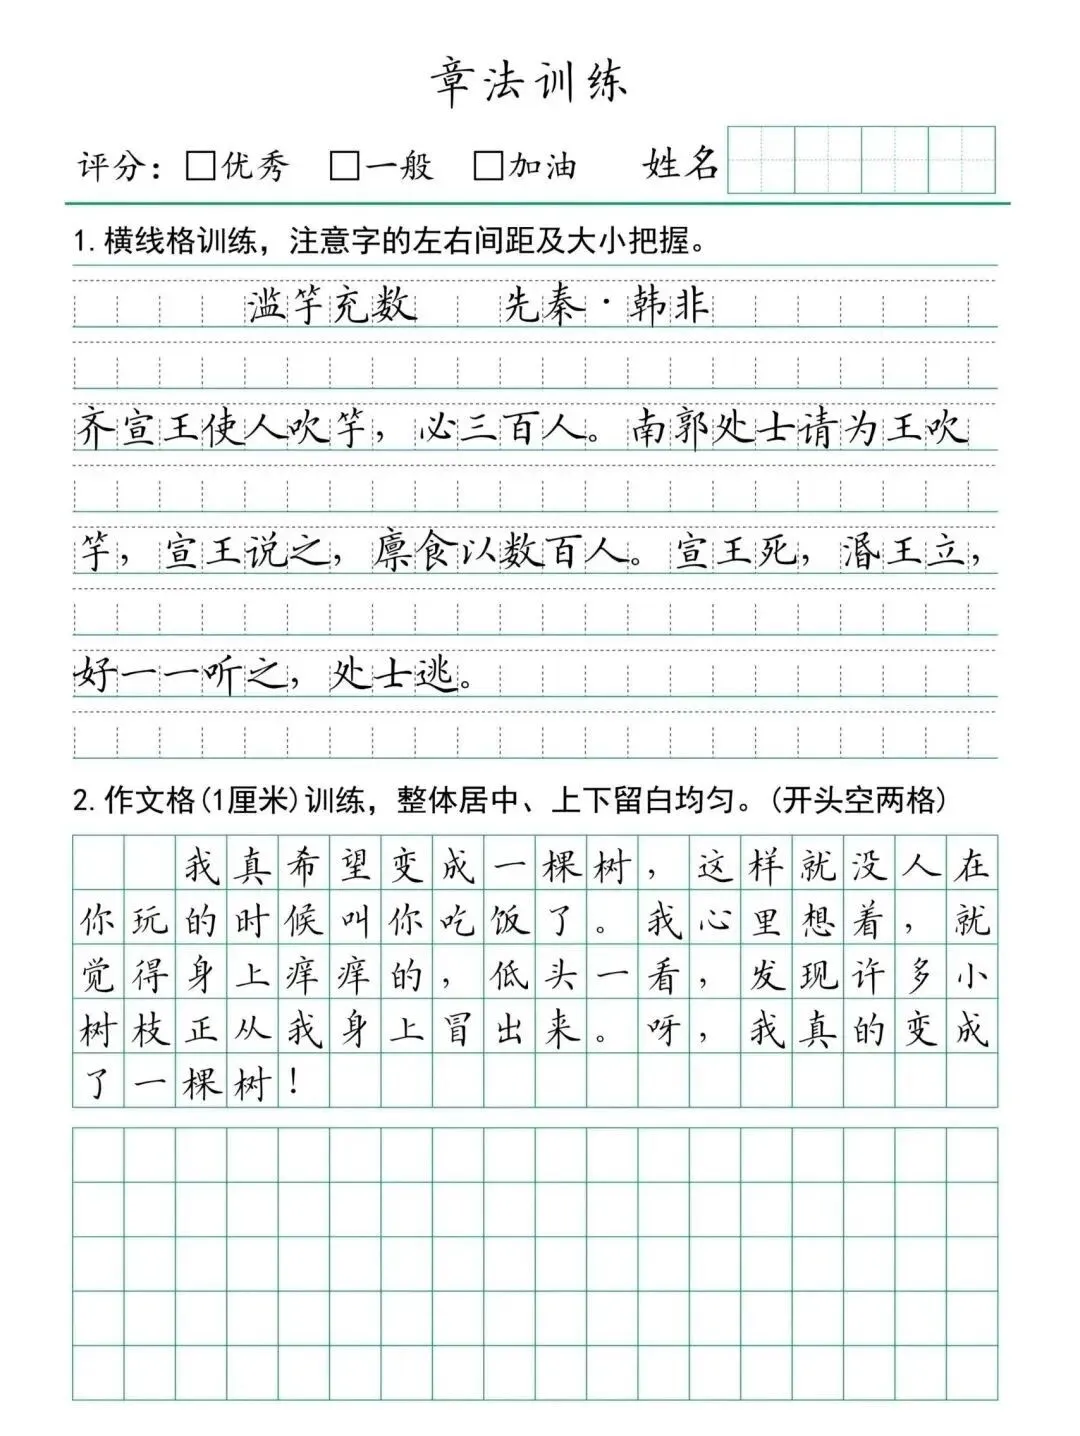 章法训练
评分：□优秀 □一般 □加油 姓名
1.横线格训练，注意字的左右间距及大小把握。
滥竽充数 先秦·韩非
齐宣王使人吹竽，必三百人。南郭处士请为王吹
竽，宣王说之，廪食以数百人。宣王死，湣王立，
好一一听之，处士逃。
2.作文格(1厘米)训练，整体居中、上下留白均匀。(开头空两格)
我真希望变成一棵树，这样就没人在
你玩的时候叫你吃饭了。我心里想着，就
觉得身上痒痒的，低头一看，发现许多小
树枝正从我身上冒出来。呀，我真的变成
了一棵树！